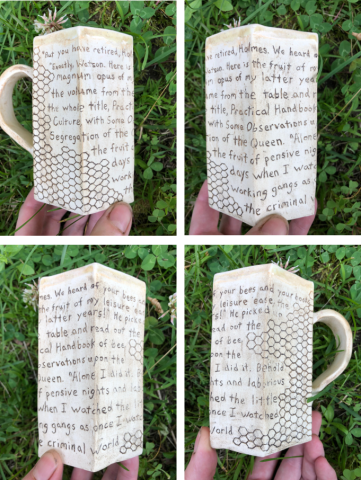 "But you have retired, Hol
Exactly, Watson. Here is
magnum opus of my
the volume from the
the whole title, Practic
Culture, with Some Obser
Segregation of the Q
the fruit of
days
work
the
ve retired, Holmes. We heard o
Watson. Here is the fruit of my
m opus of my latter years
me from the table and r
title, Practical Handbook
with Some Observations u
ion of the Queen. "Alone
the fruit of pensive nig
days when I watc
working gangs as
the criminal w
mes. We heard of your bees and
the fruit of my leisure ease,
latter years!" He picked
table and read out the
cal Handbook of Bee
bservations upon the
Queen. "Alone I did it. Be
f pensive nights and labo
when I watched the
ng gangs as once I watc
e criminal world
f your bees and your books
leisure ease, the
rs!" He picked
ead out the
of Bee
pon the
I did it. Behold
hts and laborious
hed the little
once I watched
world